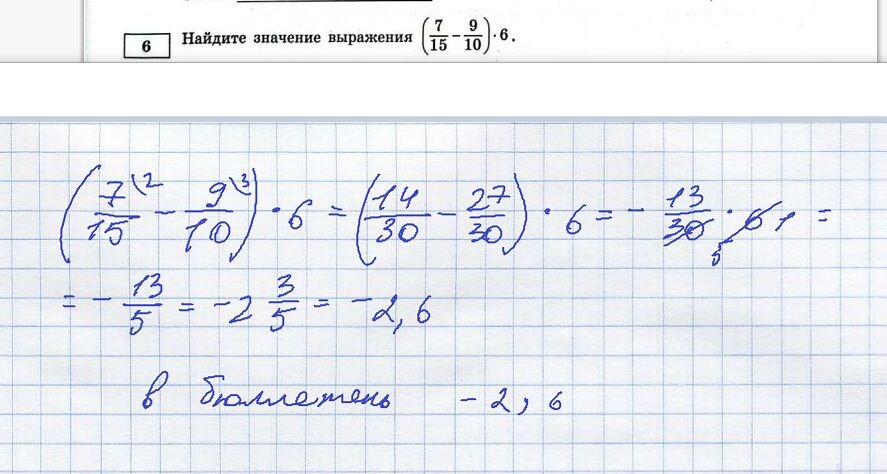 6 Найдите значение выражения (7/15 − 9/10) · 6.
(7\2/15 − 9\3/10) · 6 = (14/30 − 27/30) · 6 = − 13/30 5 · 6 1 =
= − 13/5 = −2 3/5 = −2,6
в бюллетень −2,6